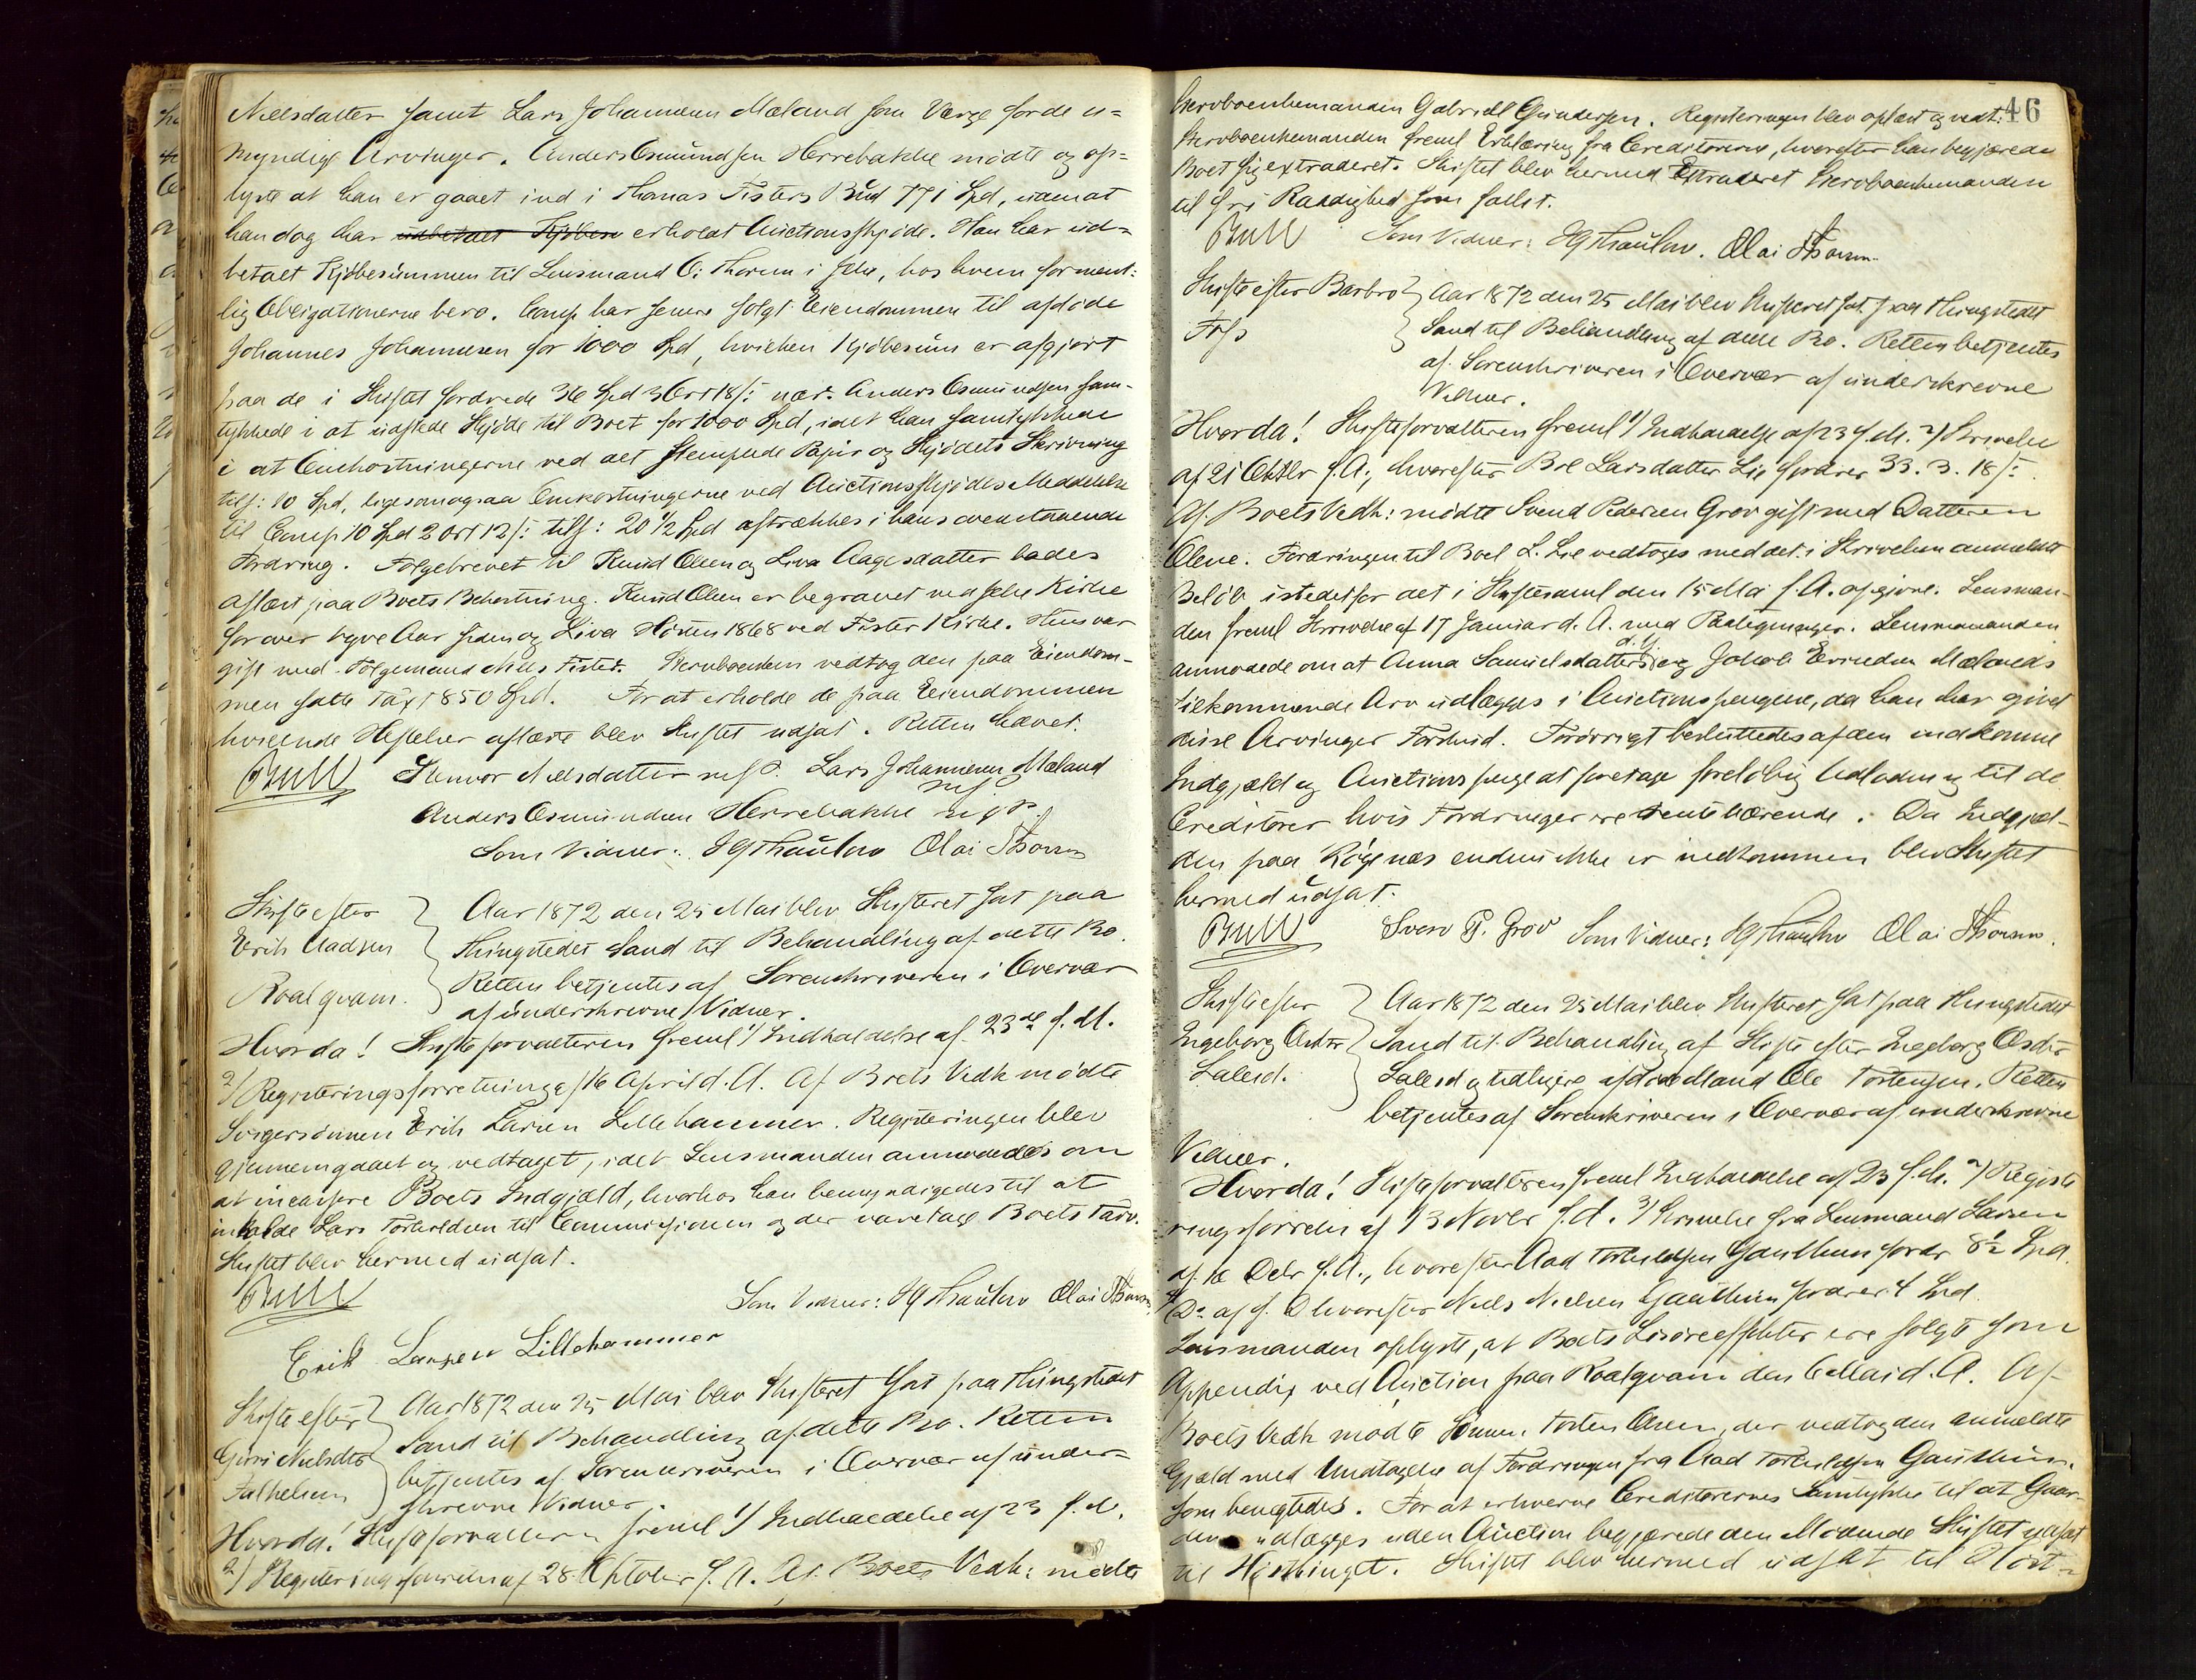 Nielsdatter samt Lars Johannesen Mæland som Værge for de u-
myndige Arvinger. Anders Osmundsen Herrebakke mødte og op-
lyste at han er gaaet ind i Thomas Fisters Bud 771 Spd, uden at
han dog har udbetalt Kjøbes erholdt Auctionsskjøde. Han har ud-
betalt Kjøbesummen til Lensmand O. Thorsen i Jelse, hos hvem forment:
lig Obligationerne bero. Comp har senere solgt Eiendommen til afdøde
Johannes Johannesen for 1000 Spd, hvilken Kjøbesum er afgjort
paa de i Skiftet fordrede 36 Spd 3 Ort 18 s: nær. Anders Osmundsen sam-
tykkede i at udstede Skjøde til Boet for 1000 Spd, idet han samtykkede
i at Omkostningerne ved det stemplede Papir og Skjødets Skrivning
tils: 10 Spd, ligesom ogsaa Omkostningerne ved Auctionsskjødes Meddelelse
til Comp 10 Spd 2 Ort 12 s: tils: 20 1/2 Spd aftrækkes i hans ovenstaaende
Fordring. Følgebrevet til Knud Olsen og Liva Aagesdatter bades
aflæst paa Boets Bekostning. Knud Olsen er begravet ved Jelse Kirke
for over tyve Aar siden og Liva Høsten 1868 ved Fister Kirke. Hun var
gift med Følgemand Nils Fister. Stervboenken vedtog den paa Eiendom-
men satte Taxt 850 Spd. For at erholde de paa Eiendommen
hvilende Heftelser aflæste blev Skiftet udsat. Retten hævet.
Bull Stenvor Nielsdatter m f P. Lars Johannesen Mæland
m f P
Anders Osmundsen Herrebakke m f P.
Som Vidner: H G Thaulow Olai Thorsen
Skifte efter
Erik Aadsen
Roalqvam.
Aar 1872 den 25 Mai blev Skifteret sat paa
Thingstedet Sand til Behandling af dette Bo.
Retten betjentes af Sorenskriveren i Overvær
af underskrevne Vidner.
Hvorda! Skifteforvalteren freml 1/ Indkaldelse af 23de f. M.
2/ Registreringsforretning af 16 April d. A. Af Boets Vedk mødte
Svigersønnen Erik Larsen Lillehammer. Registreringen blev
gjennemgaaet og vedtaget, idet Lensmanden anmodedes om
at incassere Boets Indgjæld, hvorhos han bemyndigedes til at
indkalde Lars Torkeldsen til Commissionen og der varetage Boets Tarv.
Skiftet blev hermed udsat.
Bull
Som Vidner: H G Thaulow Olai Thorsen
Erik Larsen Lillehammer
Skifte efter
Guri Nielsdtr
Fatheim
Aar 1872 den 25 Mai blev Skifteret sat paa Thingstedet
Sand til Behandling af dette Bo. Retten
betjentes af Sorenskriveren i Overvær af under-
skrevne Vidner.
Hvorda! Skifteforvalteren freml 1/ Indkaldelse af 23 f. M.
2/ Registreringsforretn af 28 Oktober f. A. Af Boets Vedk: mødte
46
Stervboenkemanden Gabriell Gundersen. Registreringen blev oplæst og vedt:
Stervboenkemanden freml Erklæring fra Creditorerne, hvorefter han begjærede
Boet sig extraderet. Skiftet blev hermed Extraderet Stervboenkemanden
til fri Raadighed som fallit.
Bull Som Vidner: H G Thaulow. Olai Thorsen
Skifte efter Barbro
Foss
Aar 1872 den 25 Mai blev Skifteret sat paa Thingstedet
Sand til Behandling af dette Bo. Retten betjentes
af Sorenskriveren i Overvær af underskrevne
Vidner.
Hvorda! Skifteforvalteren freml 1/ Indkaldelse af 23 f. M. 2/ Skrivelse
af 21 Oktbr f. A., hvorefter Boe Larsdatter Lie fordrer 33. 3. 18 s:
Af Boets Vedk: mødte Svend Pedersen Grov gift med Datteren
Olene. Fordringen til Boel L. Lie vedtoges med det i Skrivelsen anmeldte
Beløb istedetfor det i Skiftesaml den 15 Mai f. A. opgivne. Lensman-
den freml Skrivelse af 17 Januar d. A. med Paategninger. Lensmanden
anmodede om at Anna Samuelsdatters og Jakob Eivindsen Mælands
tilkommende Arv udlægges i Auctionspengene, da han har givet
disse Arvinger Forskud. Forøvrigt besluttedes af den indkomne
Indgjæld og Auctionspenge at foretage foreløbig Udlodning til de
Creditorer hvis Fordringer ere rentebærende. Da Indgjæl-
den paa Røgenæs endnu ikke er indkommen blev Skiftet
hermed udsat.
Bull Svend P. Grov Som Vidner: H G Thaulow Olai Thorsen.
Skifte efter
Ingeborg Osdtr
Lalesd.
Aar 1872 den 25 Mai blev Skifteret sat paa Thingstedet
Sand til Behandling af Skifte efter Ingeborg Osdtr
Lalesd og tidligere afdøde Mand Ole Tortensen. Retten
betjentes af Sorenskriveren i Overvær af underskrevne
Vidner.
Hvorda! Skifteforvalteren freml Indkaldelse af 23 f. M. 2/ Registe
ringsforretn af 13 Novbr f. A. 3/ Skrivelse fra Lensmand Larsen
af 16 Debr f. A., hvorefter Aad Torkildsen Gauthun fordr 8 1/2 Spd.
4/ Do af s. D hvorefter Niels Nielsen Gauthun fordrer 4 Spd.
Lensmanden oplyste, at Boets Løsøreeffekter ere solgte som
Appendix ved Auction paa Roalqvam den 6 Mai d. A. Af
Boets Vedk mødte Sønnen Torten Olsen, der vedtog den anmeldte
Gjæld med Undtagelse af Fordringen fra Aad Torkildsen Gauthun,
som benegtedes. For at erhverve Creditorernes Samtykke til at Gaar-
den udlægges uden Auction begjærede den Mødende Skiftet udsat
til Høstthinget. Skiftet blev hermed udsat til Høst-